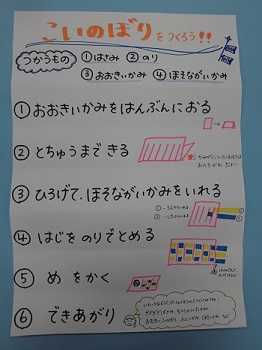 こいのぼりをつくろう!!
つかうもの ①はさみ ②のり
③おおきいかみ ④ほそながいかみ
①おおきいかみをはんぶんにおる
②とちゅうまできる
③ひろげて、ほそながいかみをいれる
④はじをのりでとめる
⑤めをかく
⑥できあがり